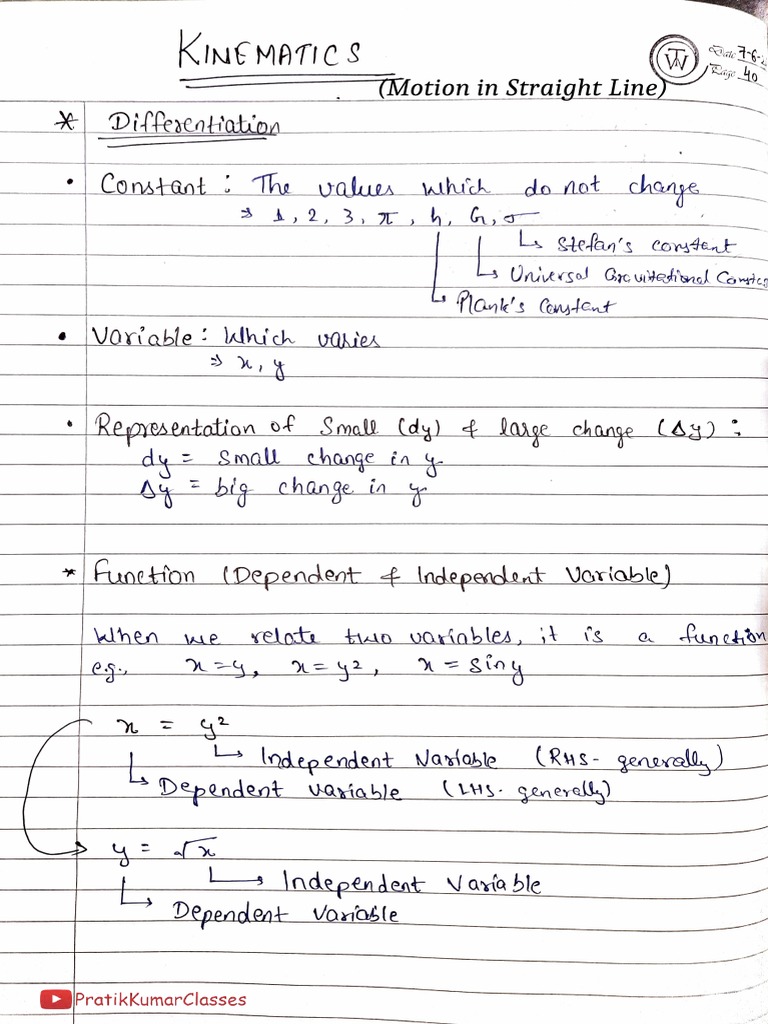 KINEMATICS
(Motion in Straight Line)
TW
Date 7-6-2
Page 40
* Differentiation
• Constant : The values which do not change
⇒ 1, 2, 3, π, h, G, σ
↳ Stefan's constant
↳ Universal Gravitational Constan
↳ Plank's Constant
• Variable : Which varies
⇒ x, y
• Representation of Small (dy) & large change (Δy) :
dy = small change in y.
Δy = big change in y.
* Function (Dependent & Independent Variable)
When we relate two variables, it is a function
e.g., x = y, x = y², x = sin y
x = y²
↳ Independent Variable (RHS - generally)
↳ Dependent variable (LHS - generally)
y = √x
↳ Independent Variable
↳ Dependent Variable
PratikKumarClasses